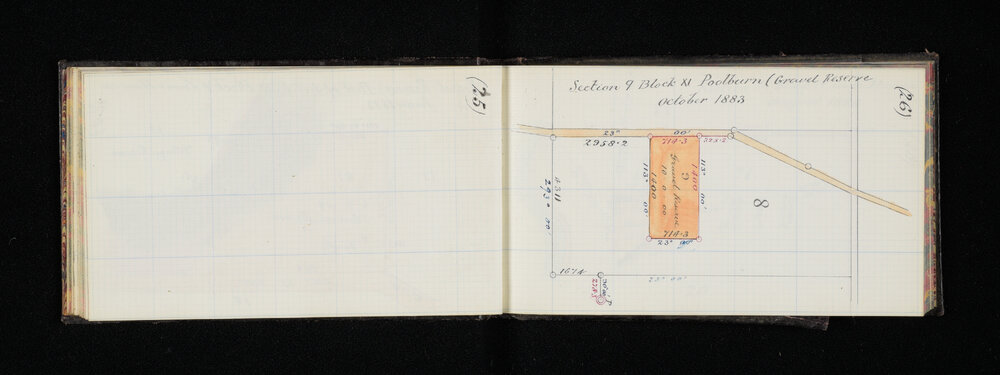 (25)
(26)
Section 9 Block XI Poolburn (Gravel Reserve
October 1883
23° 00'
2958·2
714·3
328·2
113° 00'
1400
9
Gravel Reserve
10 0 00
113° 00'
1400
714·3
23° 00'
8
4311
293° 00'
1674
23° 00'